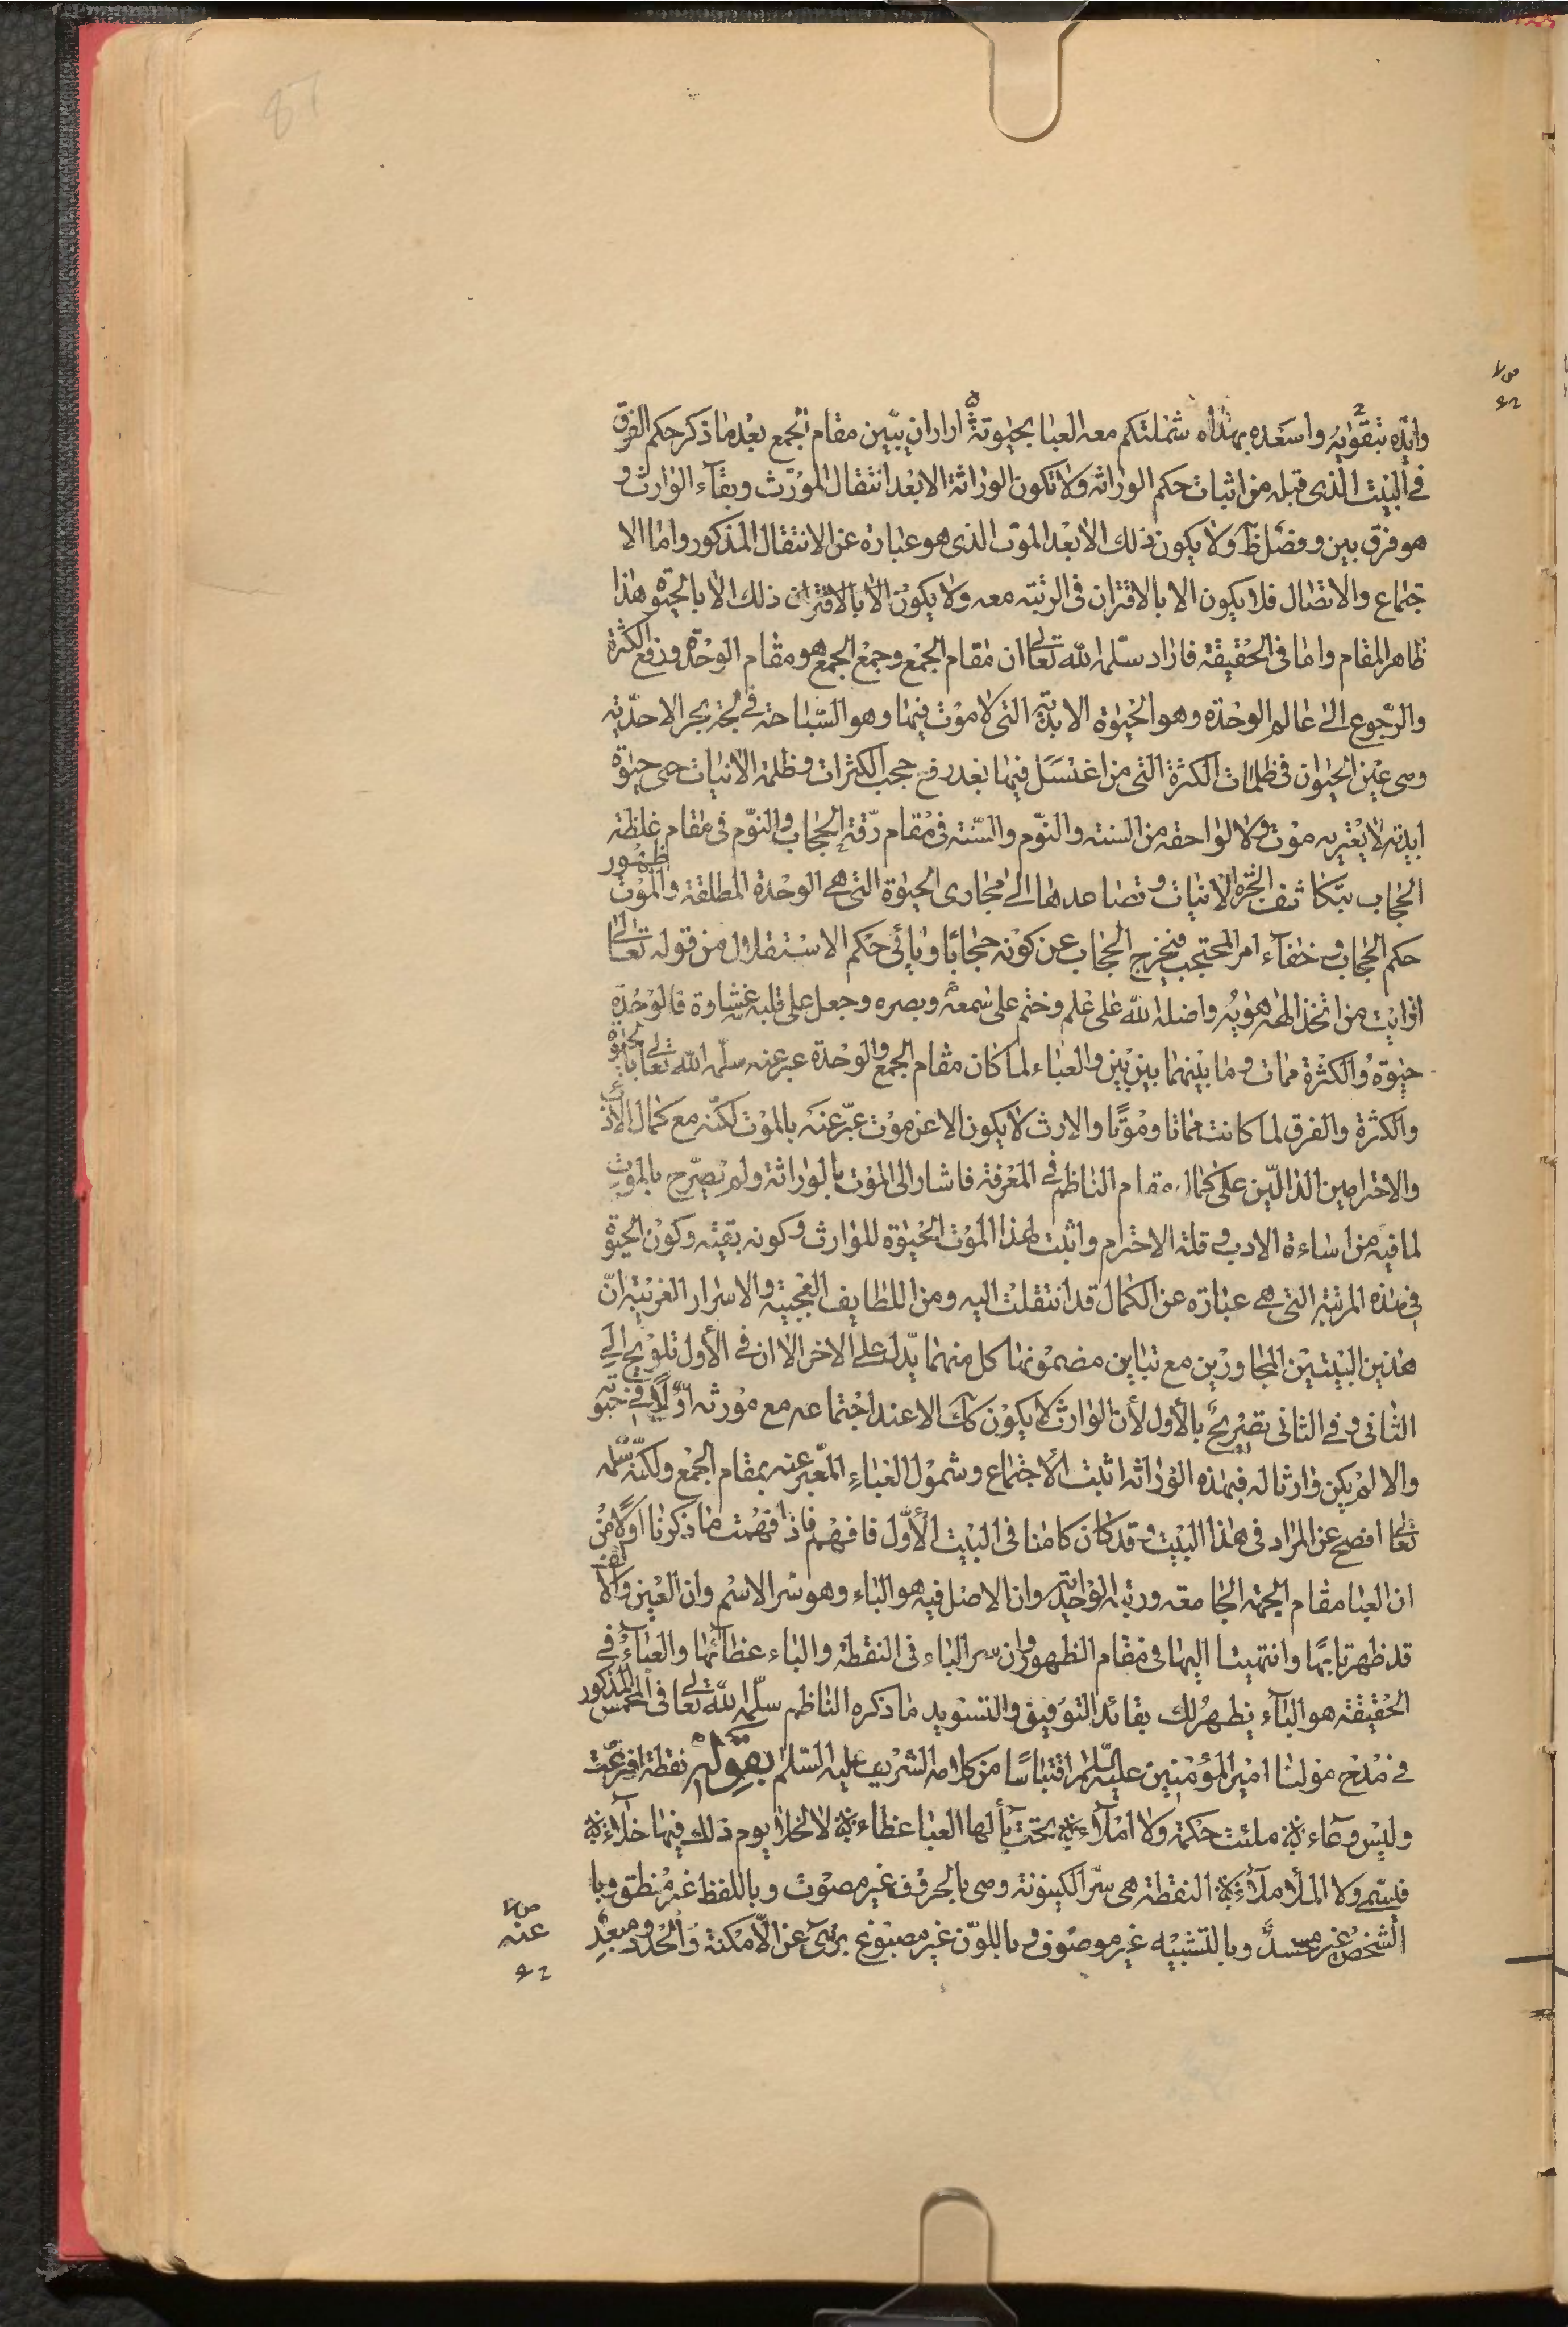 87
وايّده بتقويه واسعده بهداه شملتكم معه العبا بحيوته اراد ان يبّين مقام الجمع بعد ما ذكر حكم الفرق
في البيت الذى قبله من اثبات حكم الوراثه ولا تكون الوراثة الا بعد انتقال المورّث وبقآء الوارث و
هو فرق بين وفصل ظ ولا يكون ذلك الا بعد الموت الذى هو عبارة عن الانتقال المذكور واما الا
جتماع والاتصال فلا يكون الا بالاقتران فى الرتبته معه ولا يكون الا بالاقتران ذلك الا بالحيوة هذا
ظاهر المقام واما فى الحقيقة فاراد سلّمه الله تعالى ان مقام الجمع وجمع الجمع هو مقام الوحدة ورفع الكثرة
والرّجوع الى عالم الوحدة وهو الحيوة الابديّه التى لا موت فيها وهو السّباحة فى لجة بحر الاحدّيّه
وهى عين الحيوان فى ظلمات الكثرة التى من اغتسل فيها بعد رفع حجب الكثرات وظلمة الانيات حى حيوة
ابديّه لا يعتريه موت ولا لواحقه من السنته والنوّم والسّنته فى مقام رّقة الحجاب والنوّم فى مقام غلظة
الحجاب بتكاثف ابخرة الانيات وتصاعدها الى مجارى الحيوة التى هى الوحدة المطلقة والموت ظهور
حكم الحجاب فى خفآء امر المحتجب فيخرج الحجاب عن كونه حجابًا وياتى حكم الاستقلال من قوله تعالى
افرايت من اتخذ الهه هويه واضله الله على علم وختم على سمعه وبصره وجعل على قلبه غشاوة فالوحدة
حيوة والكثرة ممات وما بينهما بين بين والعباء لما كان مقام الجمع والوحدة عبر عنه سلّمه الله تعالى بالحيوة
والكثرة والفرق لما كانت مماتا وموتًا والارث لا يكون الا عن موت عبّر عنه بالموت لكنّه مع كمال الأدب
والاحترامين الدالّين على كمال مقام الناظم فى المعرفة فاشار الى الموت بالوراثة ولم يصّرح بالموت
لما فيه من اساءة الادب وقلة الاحترام واثبت لهذا الموت الحيوة للوارث وكونه بقيته وكون الحيوة
فى هذه المرتبة التى هى عبارة عن الكمال قد انتقلت اليه ومن اللطايف العجيبة والاسرار الغريبة انّ
هذين البيتين المجاورين مع تباين مضمونها كل منهما يدّل على الاخر الا ان فى الأول تلويح الى
الثانى وفى الثانى تصريح بالأول لأن الوارث لا يكون كك الا عند اجتماعه مع مورثه اوّلًا فى حيوته
والا لم يكن وارثا له فبهذه الوراثه اثبت الأجتماع وشمول العباء المعّبر عنه بمقام الجمع ولكنّه سلّمه
تعالى افصح عن المراد فى هذا البيت وقد كان كامنا فى البيت الأوّل فافهم فاذا فهمت ما ذكرنا اولًا من
ان العبا مقام الجهة الجامعه ورتبة الواحدّيه وان الاصل فيه هو الباء وهو سّر الاسم وان العين والالف
قد ظهرتا بها وانتهيتا اليها فى مقام الظهور وان سر الباء فى النقطة والباء غطآئها والعبآء فى
الحقيقة هو البآء يظهر لك بقائد التوفيق والتسديد ما ذكره الناظم سلّمه الله تعالى فى المخمّس المذكور
فى مدح مولينا امير المؤمنين عليه السّلم اقتباسًا من كلامه الشريف عليه السّلم بقوله نقطة افرغت
وليس وعاء ملئت حكمة ولا املآء تحت بآلها العبا غطاء لا لخلا يوم ذلك فيها خلآء
فيسّمى ولا الملأ ملآء النقطة هى سّر الكينونة وهى بالحروف غير مصّوت وباللفظ غير منطق وبا
الشخص غير مجسد وبالتشبيه غير موصوف وباللوّن غير مصبوغ برىّ عن الأمكنة والحدود مبعد
عنه